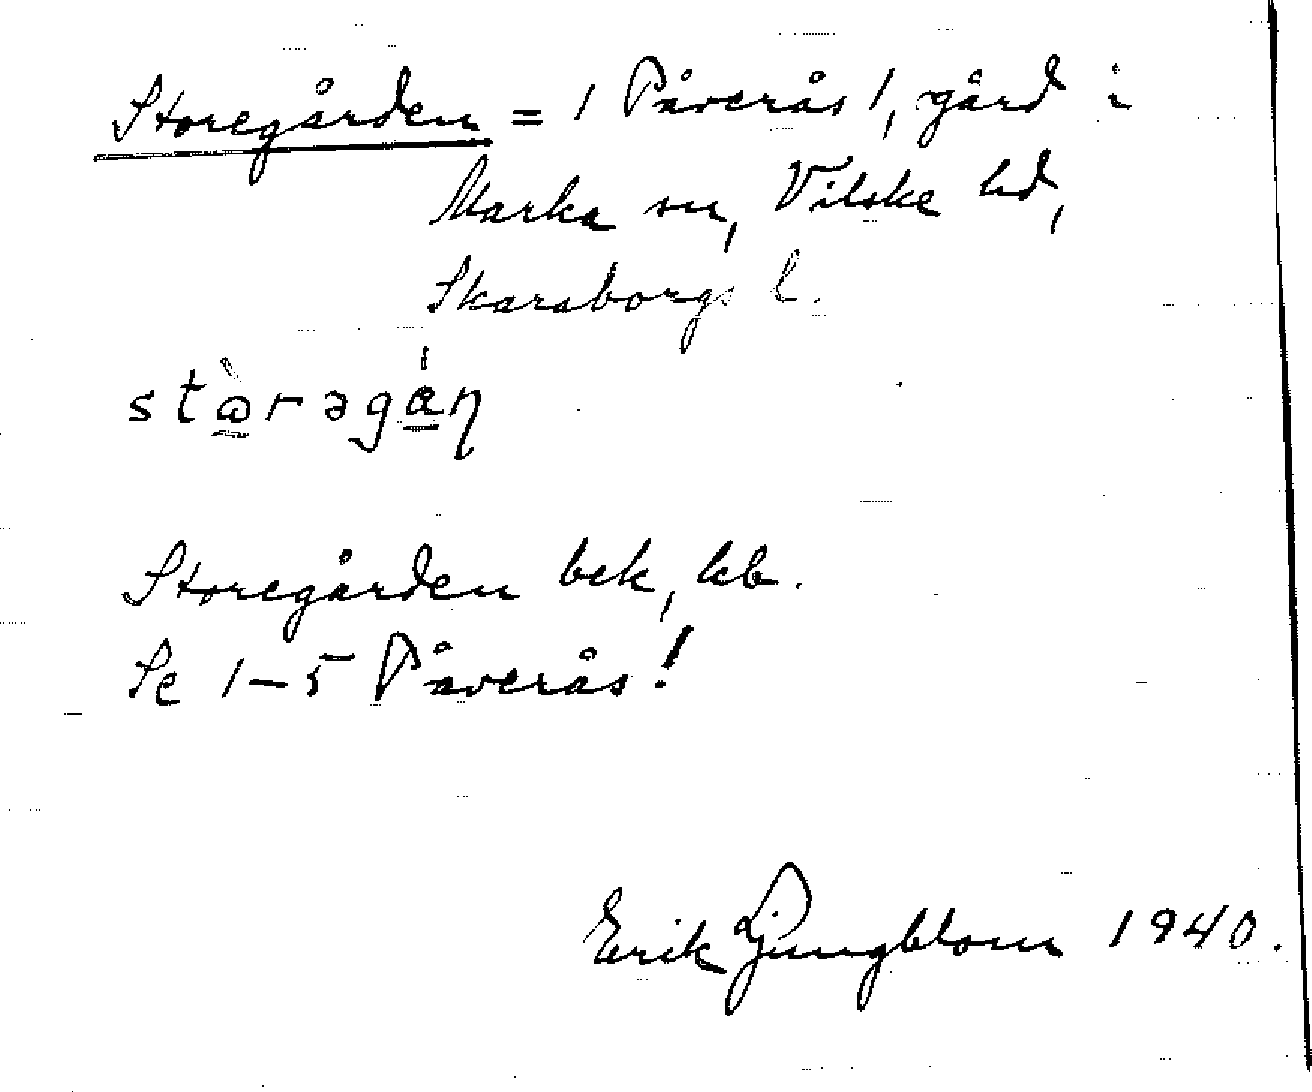 Storegården = 1 Påverås 1, gård i
Marka sn, Vilske hd,
Skaraborgs l.
Storegården bek, kb.
Se 1-5 Påverås!
Erik Ljungblom 1940.